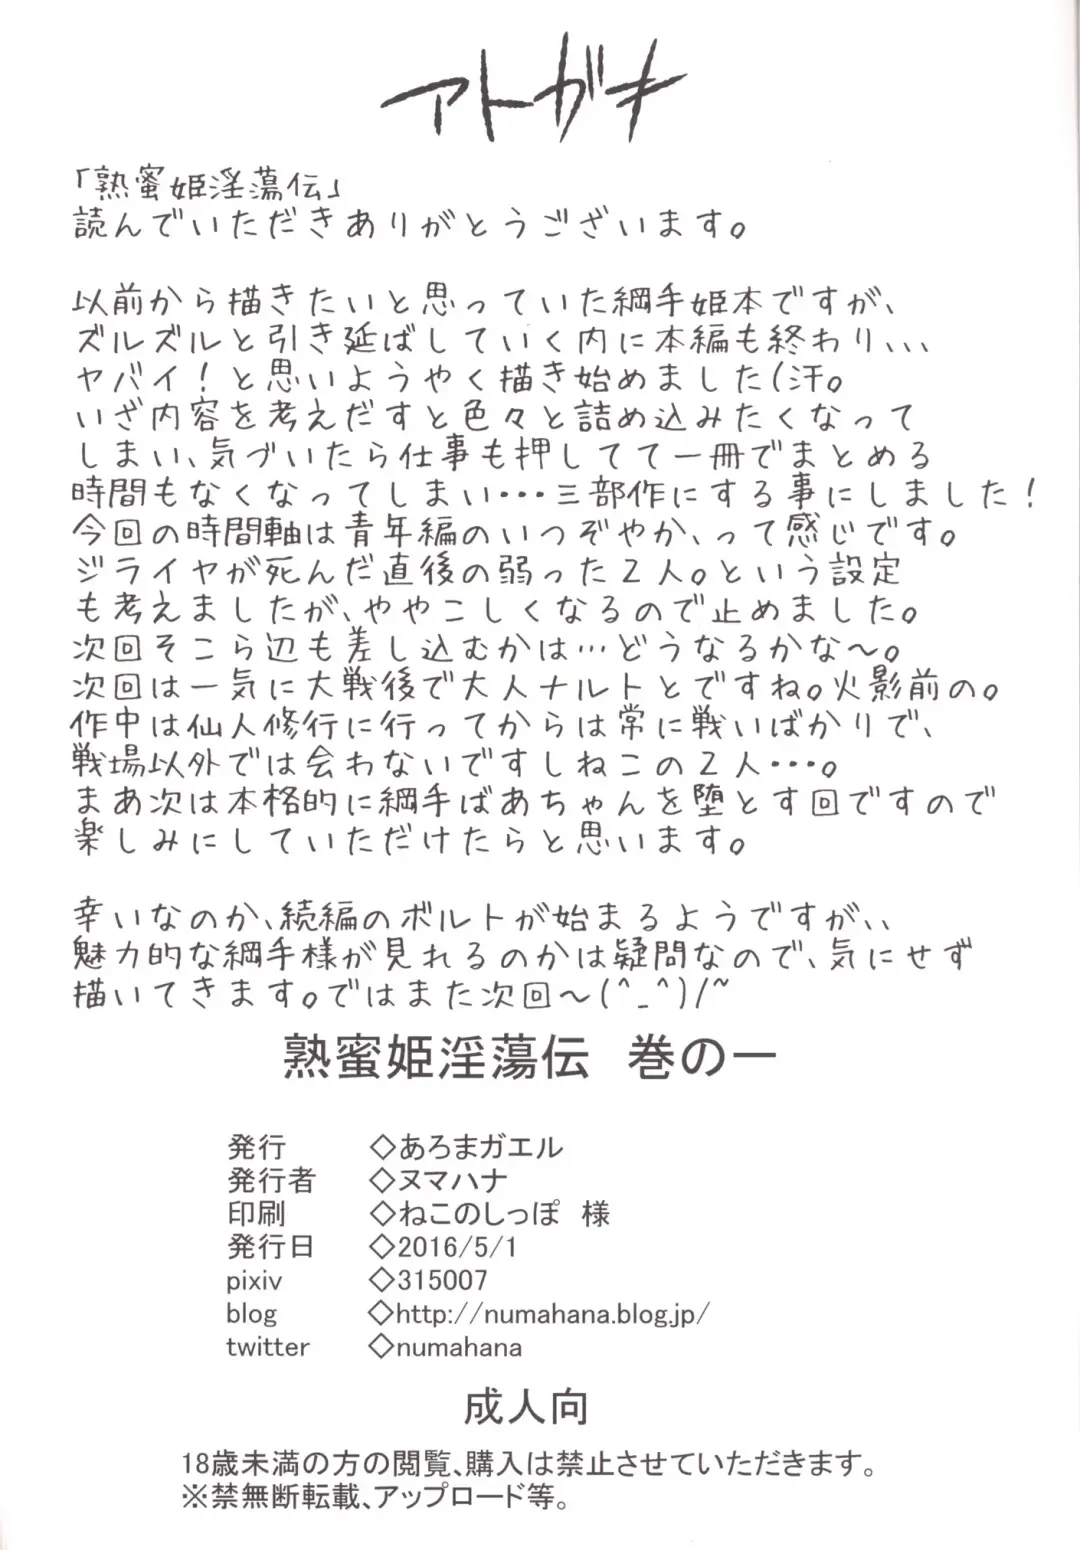 アトガキ
「熟蜜姫淫蕩伝」
読んでいただきありがとうございます。
以前から描きたいと思っていた綱手姫本ですが、
ズルズルと引き延ばしていく内に本編も終わり、、、
ヤバイ！と思いようやく描き始めました(汗。
いざ内容を考えだすと色々と詰め込みたくなって
しまい、気づいたら仕事も押してて一冊でまとめる
時間もなくなってしまい・・・三部作にする事にしました！
今回の時間軸は青年編のいつぞやか、って感じです。
ジライヤが死んだ直後の弱った2人。という設定
も考えましたが、ややこしくなるので止めました。
次回そこら辺も差し込むかは…どうなるかな〜。
次回は一気に大戦後で大人ナルトとですね。火影前の。
作中は仙人修行に行ってからは常に戦いばかりで、
戦場以外では会わないですしねこの2人・・・。
まあ次は本格的に綱手ばあちゃんを堕とす回ですので
楽しみにしていただけたらと思います。
幸いなのか、続編のボルトが始まるようですが、、
魅力的な綱手様が見れるのかは疑問なので、気にせず
描いてきます。ではまた次回〜(^_^)/~
熟蜜姫淫蕩伝　巻の一
発行　◇あろまガエル
発行者　◇ヌマハナ
印刷　◇ねこのしっぽ　様
発行日　◇2016/5/1
pixiv　◇315007
blog　◇http://numahana.blog.jp/
twitter　◇numahana
成人向
18歳未満の方の閲覧、購入は禁止させていただきます。
※禁無断転載、アップロード等。